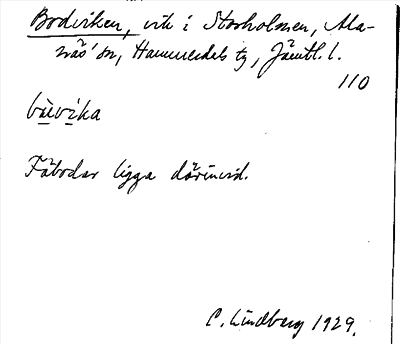 Bodviken, vik i Storholmen, Ala-
näs' sn, Hammerdals tg, Jämtl. l.
110
bùvika
Fäbodar ligga därinvid.
C. Lindberg 1929.